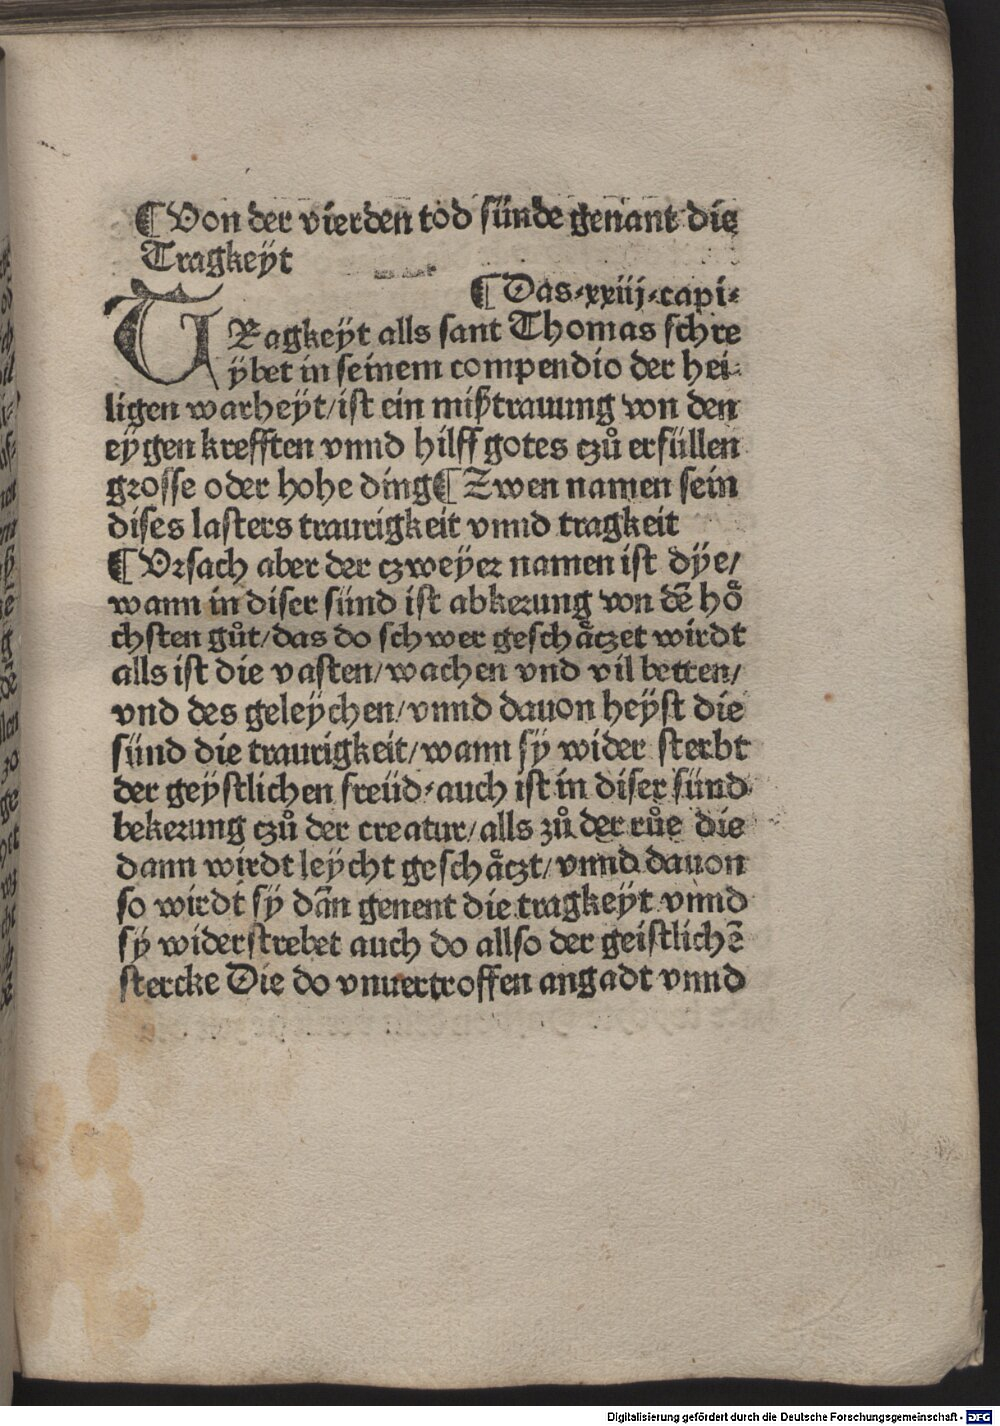 ¶Von der vierden tod sünde genant die
Tragkeyt
¶Das.xxiij.capi.
TRagkeÿt alls sant Thomas schre
ÿbet in seinem compendio der hei-
ligen warheÿt/ist ein mißtrauung von den
eÿgen krefften vnnd hilff gotes czů erfüllen
grosse oder hohe ding¶ Zwen namen sein
dises lasters traurigkeit vnnd tragkeit
¶Vrsach aber der czweÿer namen ist dÿe/
wann in diser sünd ist abkerung von dē hoͤ
chsten gůt/das do schwer geschaͤczet wirdt
alls ist die vasten/wachen vnd vil betten/
vnd des geleÿchen/vnnd dauon heÿst die
sünd die traurigkeit/wann sÿ wider sterbt
der geÿstlichen freüd.auch ist in diser sünd
bekerung czů der creatur/alls zů der růe die
dann wirdt leÿcht geschaͤczt/vnnd dauon
so wirdt sÿ dān genent die tragkeÿt vnnd
sÿ widerstrebet auch do allso der geistlichē
stercke Die do vnuertroffen angadt vnnd
Digitalisierung gefördert durch die Deutsche Forschungsgemeinschaft - DFG